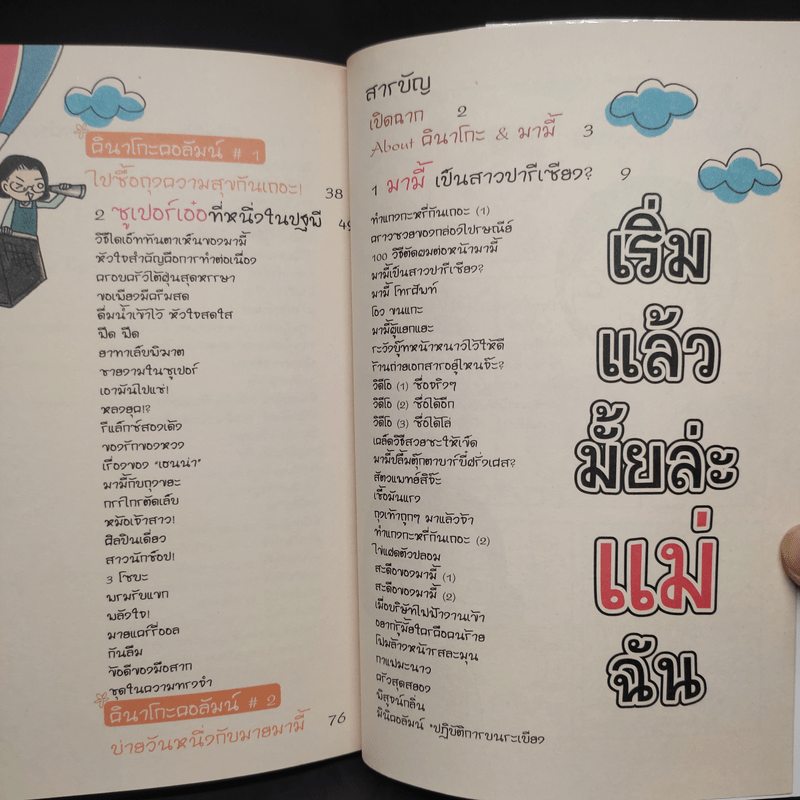 คินาโกะคอลัมน์ # 1
ไปซื้อถุงความสุขกันเถอะ! 38
2 ซูเปอร์เอ๋อที่หนึ่งในปฐพี 49
วิธีไดเอ็ททันตาเห็นของมามี้
หัวใจสำคัญคือการทำต่อเนื่อง
ครอบครัวไต้ฝุ่นสุดหรรษา
ขอเพียงมีครีมสด
ดื่มน้ำเข้าไว้ หัวใจสดใส
ปิ๊ด ปิ๊ด
ฮาทาเล็บพิฆาต
ชายงามในซูเปอร์
เอามันไปแช่!
หลงยุค!?
รีแล็กซ์สองเด้ง
ของรักของหวง
เรื่องของ "เฮนน่า"
มามี้กับถุงขยะ
กรรไกรตัดเล็บ
หม้อเจ้าสาว!
ศิลปินเดี่ยว
สาวนักช็อป!
3 โซบะ
พรมรับแขก
พลังใจ!
มายแคร์รี่ออล
กันลืม
ข้อดีของมือสาก
ชุดในความทรงจำ
คินาโกะคอลัมน์ # 2
บ่ายวันหนึ่งกับมายมามี้ 76
สารบัญ
เปิดฉาก 2
About คินาโกะ & มามี้ 3
1 มามี้ เป็นสาวปารีเซียง? 9
ทำแกงกะหรี่กันเถอะ (1)
คราวซวยของกล่องไปรษณีย์
100 วิธีตัดผมต่อหน้ามามี้
มามี้เป็นสาวปารีเซียง?
มามี้ โทรศัพท์
โอว ขนแกะ
มามี้ผู้แยกแยะ
ระวังยู๊ทหน้าหนาวไว้ให้ดี
ร้านถ่ายเอกสารอยู่ไหนจ๊ะ?
วิดีโอ (1) ซื่อจริงๆ
วิดีโอ (2) ซื่อได้อีก
วิดีโอ (3) ซื่อได้โล่
เคล็ดวิธีสวยซะให้เข็ด
มามี้ปลื้มตุ๊กตาบาร์บี้ฝรั่งเศส?
สัตวแพทย์สิจ๊ะ
เชื้อมันแรง
ถุงเท้าถูกๆ มาแล้วจ้า
ทำแกงกะหรี่กันเถอะ (2)
ไข่แฝดตัวปลอม
สะดือของมามี้ (1)
สะดือของมามี้ (2)
เมื่อบริษัทไฟฟ้างานเข้า
อยากรู้มั้ยใครคือคนร้าย
โฟมล้างหน้ารสละมุน
กาแฟมะนาว
ครัวสุดสยอง
พิสูจน์กลิ่น
มินิคอลัมน์ "ปฏิบัติการบนระเบียง
เริ่ม
แล้ว
มั้ยล่ะ
แม่
ฉัน